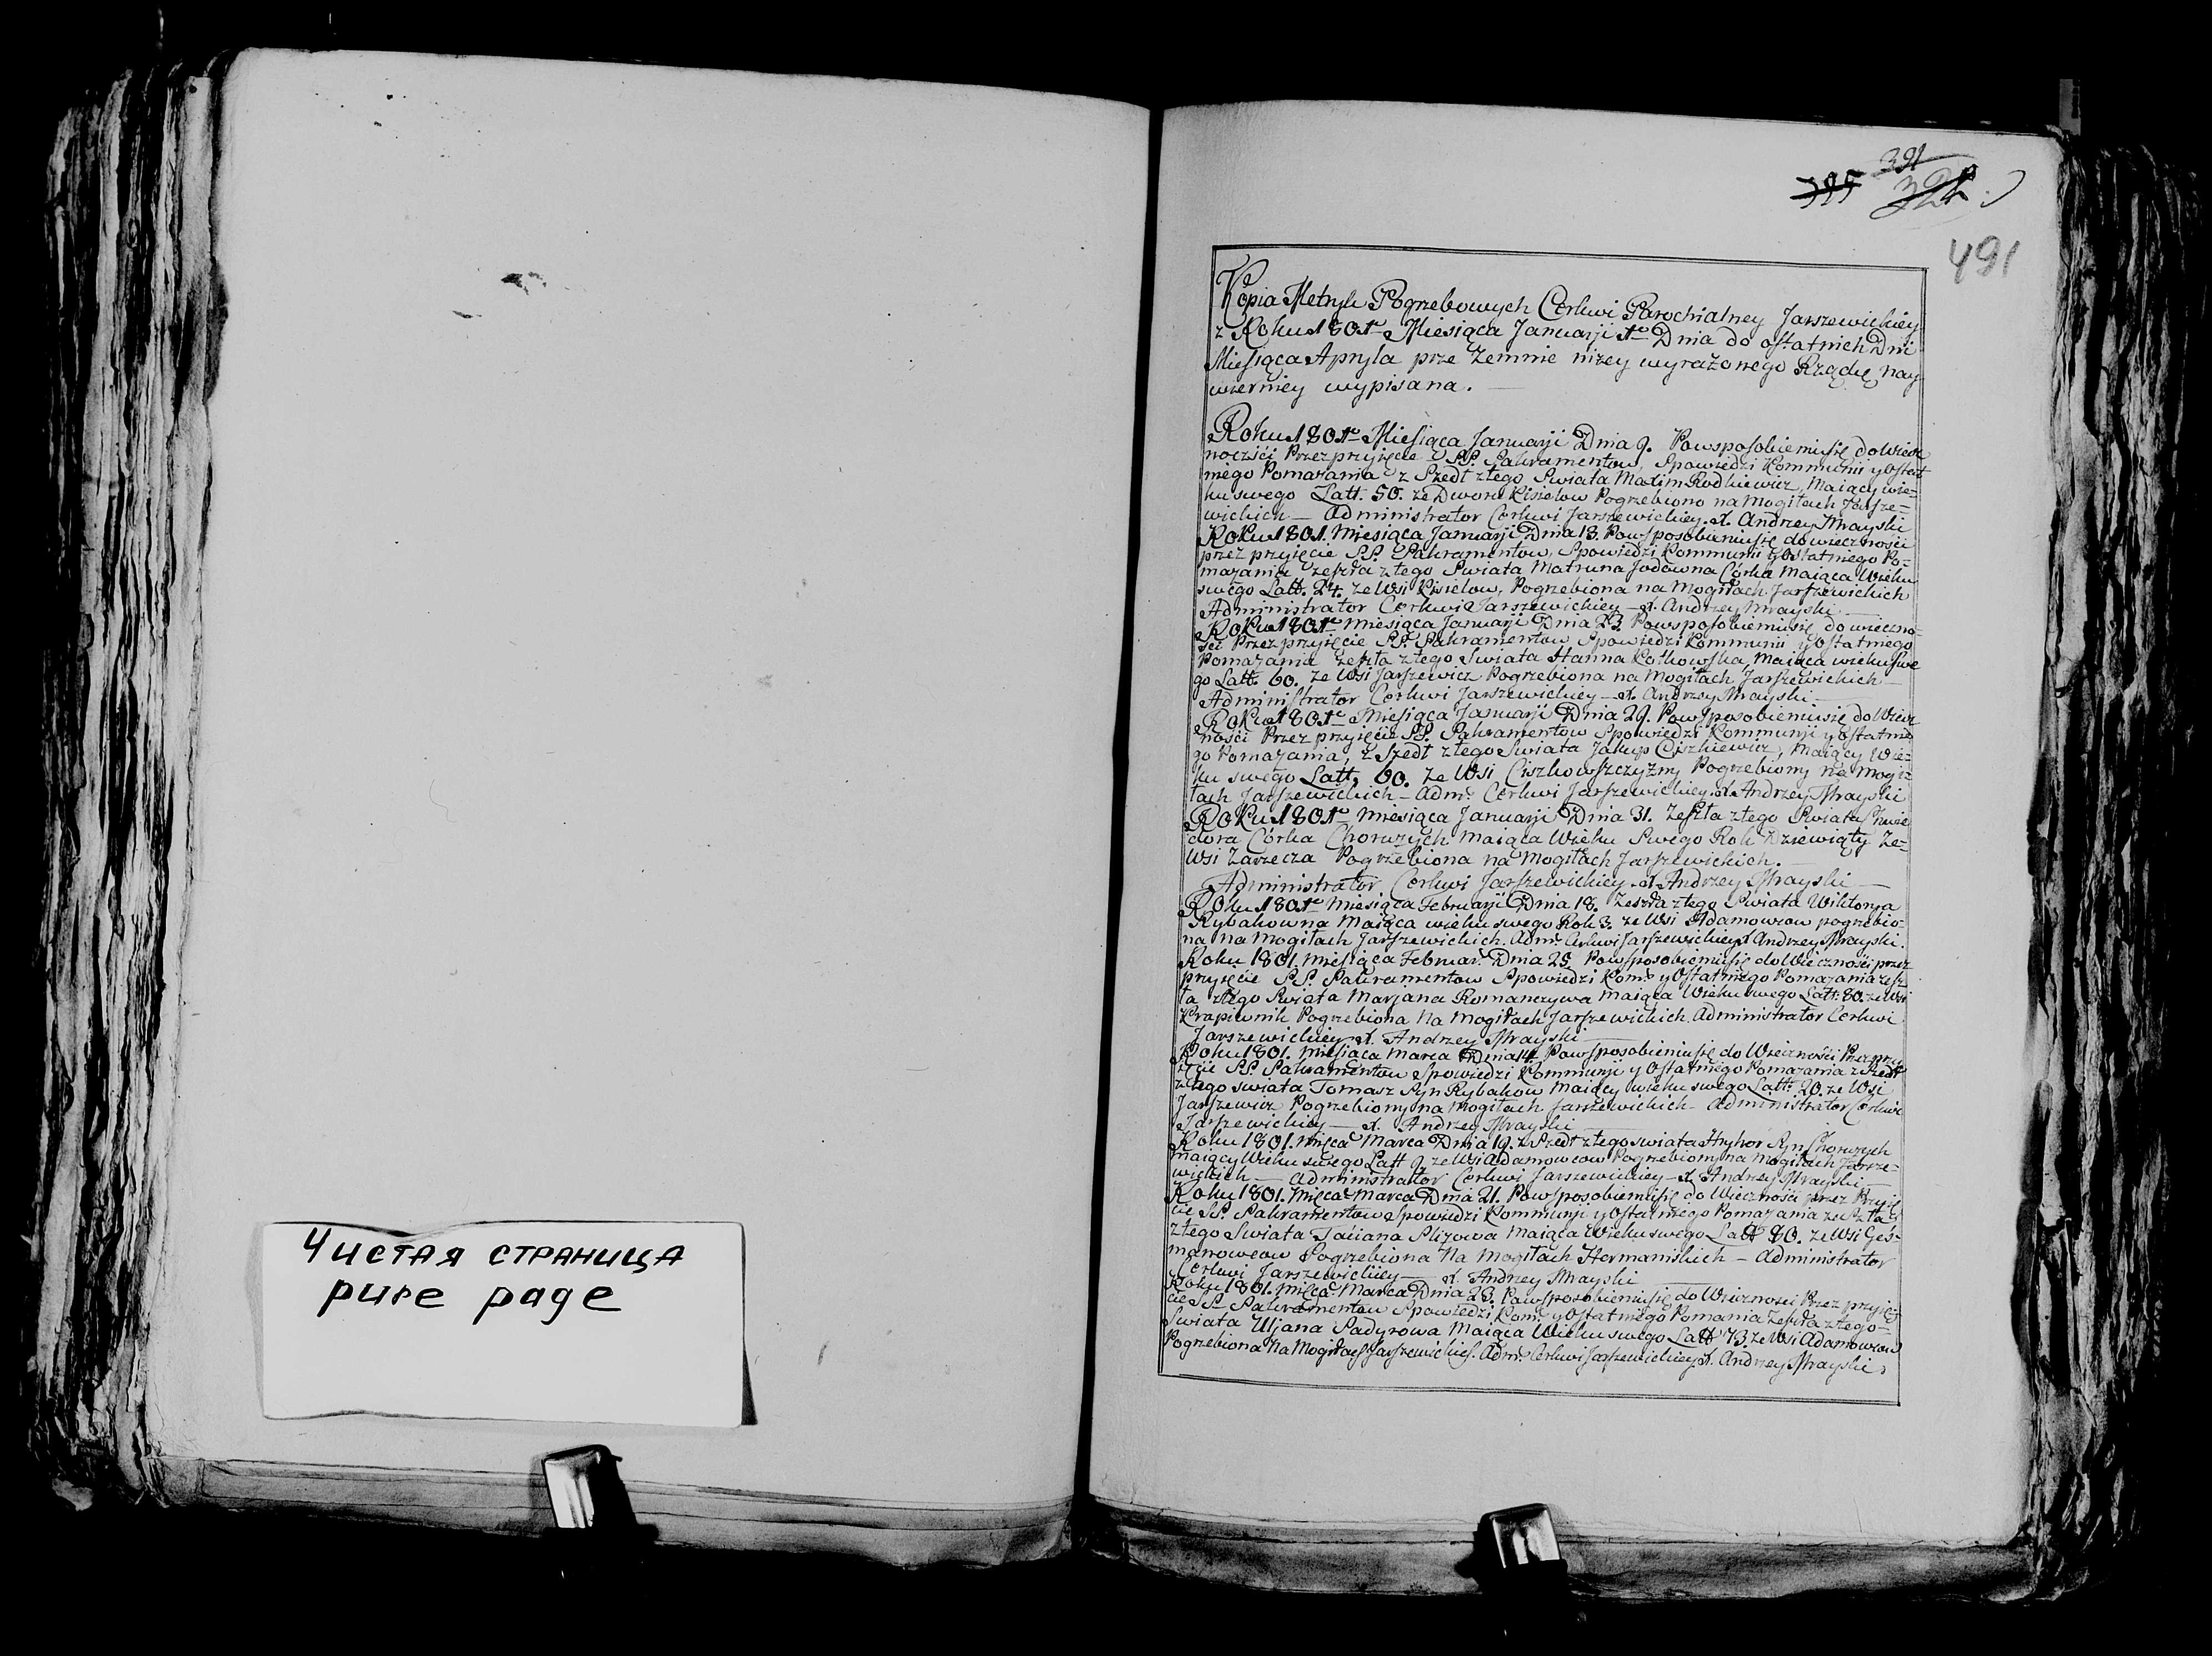 Чистая страница
pure page
391
395
491
Kopia Metryk Pogrzebowych Cerkwi Parochialney Jarszewickiey
z Roku 1801º Miesiąca Januarji 1º Dnia do ostatnich Dni
Miesiąca Apryla prze Zemnie niżey wyrażonego Rządcę nay
wierniey wypisana. —
Roku 1801º Miesiąca Januarji Dnia 9. Powsposobieniusię do Wiecz
ności Przez przyięcie SS. Sakramentow, Spowiedzi Kommunii y Ostat
niego Pomazania z Szedł ztego Swiata Maxim Rodkiewicz, Maiący wie=
ku swego Latt. 50. ze Dworu Kisielow Pogrzebiono na Mogiłach Jarsze=
wickich — Administrator Cerkwi Jarszewickiey. X. Andrzey
Roku 1801. Miesiąca Januarji Dnia 13. Powsposobieniusię do wieczności
przez przyięcie SS. Sakramentow, Spowiedzi Kommunii y Ostatniego Po=
mazania zeszła ztego Swiata Matruna Jodowna Córka Maiąca Wieku
swego Latt. 24. ze Wsi Kisielow, Pogrzebiona na Mogiłach Jarszewickich
Administrator Cerkwi Jarszewickiey — X. Andrzey
Roku 1801º Miesiąca Januarji Dnia 23 Powsposobieniusię do wieczno=
ści Przez przyięcie SS. Sakramentow Spowiedzi Kommunii y Ostatniego
Pomazania zeszła ztego Swiata Hanna Kotkowska, Maiąca wieku swe
go Latt. 60. ze Wsi Jarszewicz Pogrzebiona na Mogiłach Jarszewickich —
Administrator Cerkwi Jarszewickiey — X. Andrzey
Roku 1801º Miesiąca Januarji Dnia 29. Powsposobieniusię do Wiecz
ności Przez przyięcie SS. Sakramentow Spowiedzi Kommunji y Ostatnie
go Pomazania, z Szedł ztego Swiata Jakup Ciszkiewicz, Maiący Wie=
ku swego Latt, 60. ze Wsi Ciszkowszczyzny Pogrzebiony na Mogi=
łach Jarszewickich — Adm: Cerkwi Jarszewickiey. X. Andrzey
Roku 1801º Miesiąca Januarji Dnia 31. Zeszła ztego Swiata
dora Córka Chorużych Maiąca Wieku Swego Rok Dziewiąty Ze=
Wsi Zarzecza Pogrzebiona na Mogiłach Jarszewickich. —
Administrator Cerkwi Jarszewickiey X. Andrzey
Roku 1801º Miesiąca Februarji Dnia 18. Zeszła ztego Swiata Wiktorya
Rybakowna Maiąca wieku swego Rok 3. ze Wsi Adamowcow pogrzebio=
na na Mogiłach Jarszewickich. Adm: Cerkwi Jarszewickiey X Andrzey
Roku 1801. Miesiąca Februar: Dnia 25 Powsposobieniusię do Wieczności przez
przyięcie SS. Sakramentow Spowiedzi Kom: y Ostatniego Pomazania zesz
ła ztego Swiata Marjana Romanczywa Maiąca Wieku swego Latt. 80. ze Wsi
Krapiwnik Pogrzebiona na Mogiłach Jarszewickich. Administrator Cerkwi
Jarszewickiey X. Andrzey
Roku 1801. Miesiąca Marca Dnia 14. Powsposobieniusię do Wieczności Przez przy
ięcie SS. Sakramentow Spowiedzi Kommunji y Ostatniego Pomazania z Szedł
ztego swiata Tomasz Syn Rybakow Maiący wieku swego Latt. 20. ze Wsi
Jarszewicz Pogrzebiony na Mogiłach Jarszewickich — Administrator Cerkwi
Jarszewickiey — X. Andrzey
Roku 1801. Mięca Marca Dnia 19. z Szedł ztego swiata Hryhor Syn Chorużych
Maiący Wieku swego Latt 9 ze Wsi Adamowcow Pogrzebiony na Mogiłach Jarsze=
wickich — Administrator Cerkwi Jarszewickiey — X. Andrzey
Roku 1801. Mięca Marca Dnia 21. Powsposobieniusię do Wieczności przez Przyię
cie SS. Sakramentow Spowiedzi Kommunji y Ostatniego Pomazania ze Szła
ztego Swiata Taciana Slizowa Maiąca Wieku swego Latt 80. ze Wsi Ges=
manowcow Pogrzebiona Na Mogiłach Hermaniskich — Administrator
Cerkwi Jarszewickiey — X. Andrzey
Roku 1801. Mięca Marca Dnia 23. Powsposobieniusię do Wieczności Przez przyię=
cie SS. Sakramentow Spowiedzi Kom: y Ostatniego Pomania Zeszła ztego=
Swiata Uljana Sadyrowa Maiąca Wieku swego Latt 73. ze Wsi Adamowcow
Pogrzebiona Na Mogiłach Jarszewickich. Adm: Cerkwi Jarszewickiey X. Andrzey